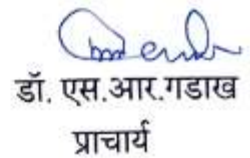 डॉ. एस.आर.गडाख
प्राचार्य